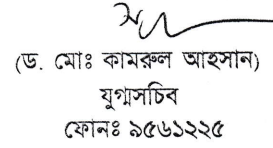 (ড. মোঃ কামরুল আহসান)
যুগ্মসচিব
ফোনঃ ৯৫৬১২২৫